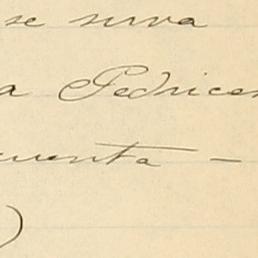 se sirva
a Pedricen
cuenta –
)